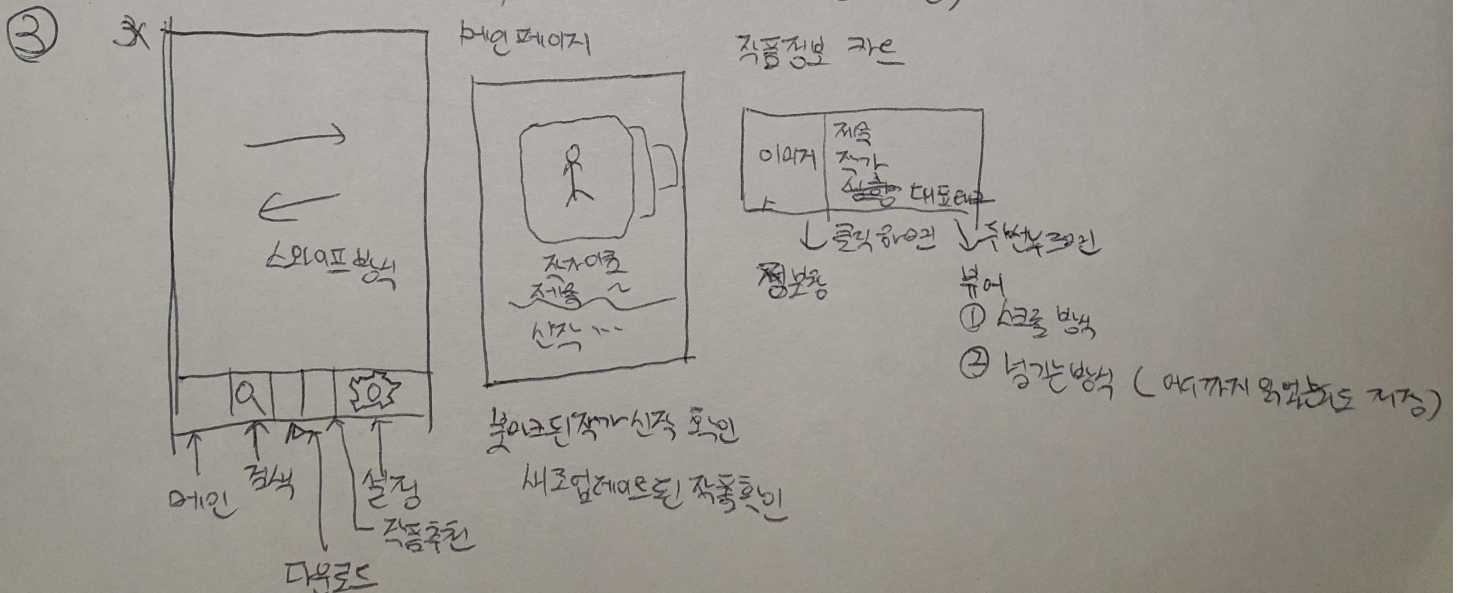 ③
스와이프 방식
메인
검색
다운로드
작품추천
설정
메인 페이지
작가이름
제목 ~
신작 ...
북마크된 작가 신작 확인
새로 업데이트된 작품 확인
작품정보 카드
이미지
제목
작가
대표태그
클릭하면
정보창
두번누르면
뷰어
① 스크롤 방식
② 넘기는 방식 ( 어디까지 읽었는지도 저장)